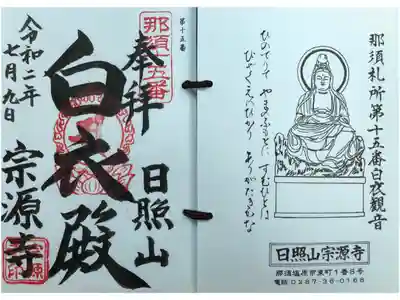 那須札所第十五番白衣観音
やまのふもとに すむひとは
びやくえのひかり ありがたきかな
日照山宗源寺
那須塩原市東町1番8号
電話 0287-36-0168
第十五番
那須十五番
奉拝
日照山
白衣殿
宗源寺
令和二年
七月九日